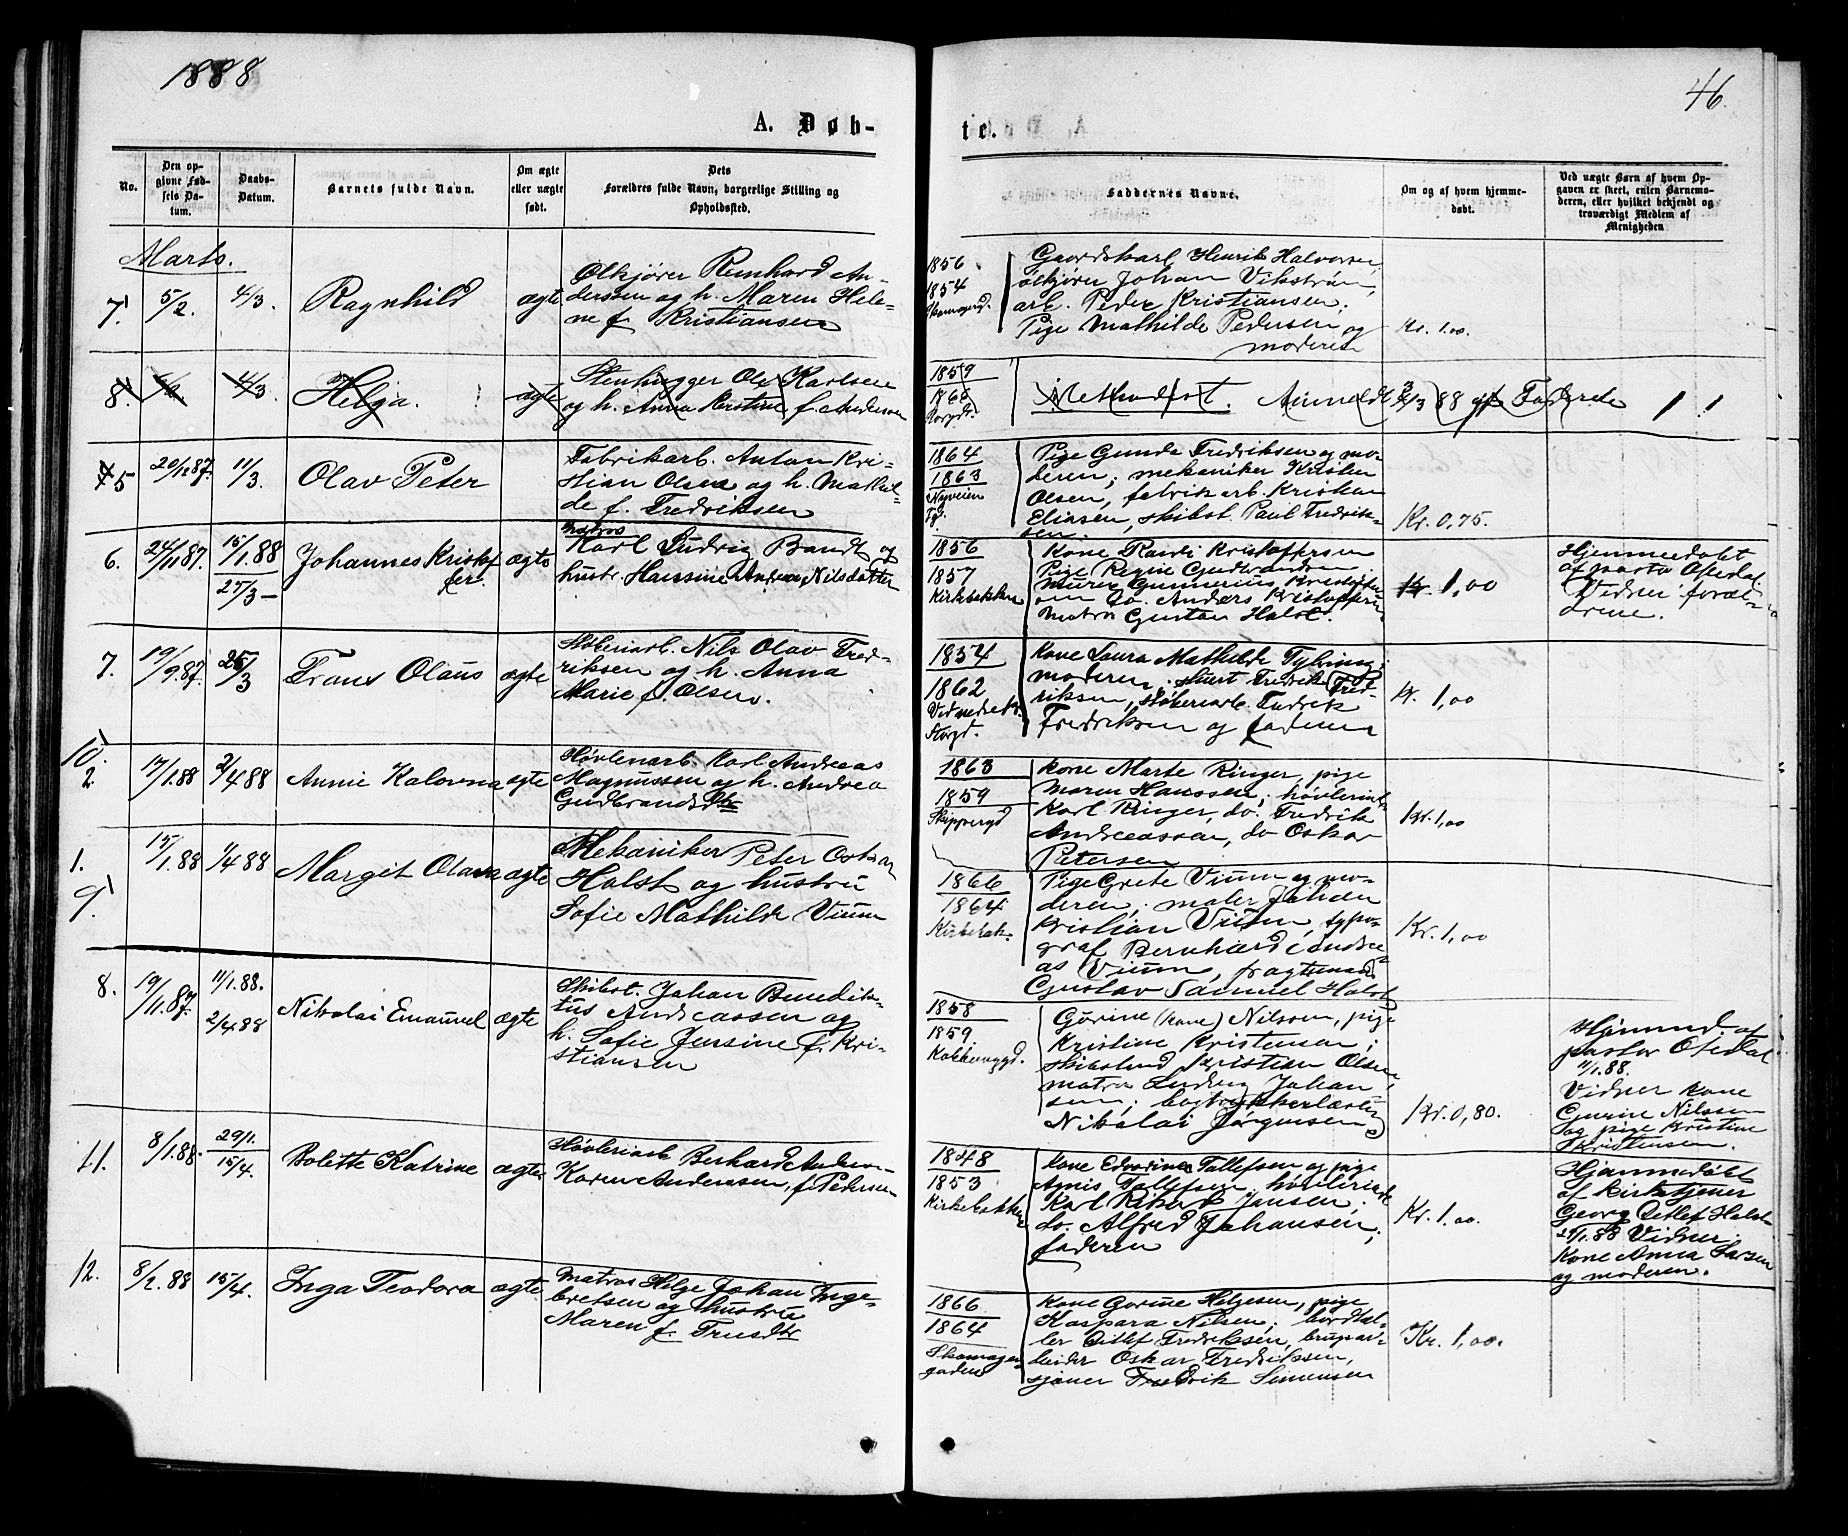 1888
46.
A. Døb-
te.
No.
Den op-
givne Fød-
sels Da-
tum.
Daabs-
Datum.
Barnets fulde Navn.
Om ægte
eller uægte
født.
Dets
Forældres fulde Navn, borgerlige Stilling og
Opholdssted.
Faddernes Navne.
Om og af hvem hjemme-
døbt.
Ved uægte Børn af hvem Op-
gaven er skeet, enten Barnemo-
deren, eller hvilket bekjendt og
troværdigt Medlem af
Menigheden
Marts.
7. 5/2. 4/3. Ragnhild ægte
Ølkjører Reinhard An-
derssen og h. Maren Hele-
ne f. Kristiansen
1856
1854
Skomagerg.
Gaardskarl Henrik Halvorsen,
ølkjører Johan Vikstrøm,
arb. Peder Kristiansen,
Pige Mathilde Pedersen og
moderen
Kr. 1.00.
8. 4/3. Helga. ægte
Stenhugger Ole Karlsen
og h. Anna Kirstine f. Andersen
1859
1860
Methodist. Anmeldt 3/3 88 af Faderen
5 20/12 87. 11/3. Olav Peter
Fabrikarb. Anton Kri-
stian Olsen og h. Mathil-
de f. Fredriksen
1864
1863
Nyveien
Pige Gunda Fredriksen og mo-
deren; mekaniker Kristen
Olsen, fabrikarb. Kristian
Eliasen, skibst. Paul Fredrik-
sen.
Kr. 0,75.
6. 24/11 87. 15/1.88 25/3 Johannes Kristof
fer. ægte
Matros
Karl Ludvig Bandt og
hustr. Hansine Andrea Nilsdatter
1856
1857
Kirkebakken
Kone Randi Kristoffersen
Pige Regine Gudbrandsen
murer Gunnerius Kristoffer
sen do. Anders Kristoffersen
Matros Gustav Holst.
Kr. 1,00
Hjemmedøbt
af pastor Ofsdal
Vidner foræl-
drene.
7. 19/9 87. 25/3 Frans Olaus ægte
Støberiarb. Nils Olav Fred-
riksen og h. Anna
Marie f. Olsen.
1854
1862
Storgd.
Kone Laura Mathilde Tybring;
moderen, Fredrik Fred-
riksen, støberiarb. Fredrik
Fredriksen og faderen
Kr. 1,00
10.
2. 17/1.88 2/4 88 Annie Kalorina ægte
Høvleriarb. Karl Andreas
Magnussen og h. Andrea
Gudbrandsdtr
1863
1859
Skippergd
Kone Marte Ringer, pige
Maren Hanssen; høvleriarb.
Karl Ringer, do. Fredrik
Andreassen, do Oskar
Petersen
Kr. 1,00
1.
9. 15/1.88 1/4 88 Margit Olava ægte
Mekaniker Peter Oskar
Holst og hustru
Sofie Mathilde Vium
1866
1864
Kirkebak.
Pige Grete Vium og mo-
deren; maler Johan
Kristian Vium, typo-
graf Bernhard Andre-
as Vium, fragtemand
Gustav Samuel Holst
Kr. 1,00
8. 19/11.87 11/1.88. 2/4.88 Nikolai Emanuel ægte
Skibst. Johan Benedik-
tus Andreassen og
h. Sofie Jensine f. Kri-
stiansen
1858
1859.
Gurine (kone) Nilssen, pige
Kristine Kristensen;
skibstmd Kristian Olsen
matros Ludvig Johan
sen; bogtrykkerlærling
Nikolai Jørgensen
Kr. 0,80.
Hjemmd. af
pastor Ofsdal
11/1.88.
Vidner kone
Gurine Nilssen
og pige Kristine
Kristensen.
11. 8/1.88. 29/1. 15/4. Bolette Katrine ægte
Høvleriarb Berhard Anders-
Karen Anderssen, f. Peders-
1848
1853
Kirkebakken
Kone Edvardine Tollefsen og pige
Agnis Tollefsen, høvleriarb
Karl Rikard Jansen,
do. Alfred Johansen,
faderen
Kr. 1.00.
Hjemmedøbt
af kirketjener
Georg Detlef Holst
29/1.88 Vidner
Kone Anna Larsen
og moderen.
12. 8/2.88 15/4. Inga Teodora ægte
Matros Helge Johan Inge-
bretsen og hustru
Maren f. Truesdtr
1866
1864
Skomager-
gaden
Kone Gurine Helgesen, pige
Kaspara Nilsen,
ler Ditlef Fredriksen, brugsar-
beider Oskar Fredriksen,
sjøner Fredrik Simensen
Kr. 1,00.